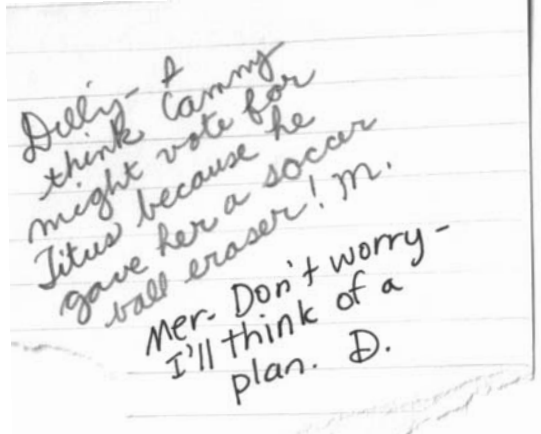 Dilly- I
think Cammy
might vote for
Titus because he
gave her a soccer
ball eraser! M.
Mer- Don't worry-
I'll think of a
plan. D.